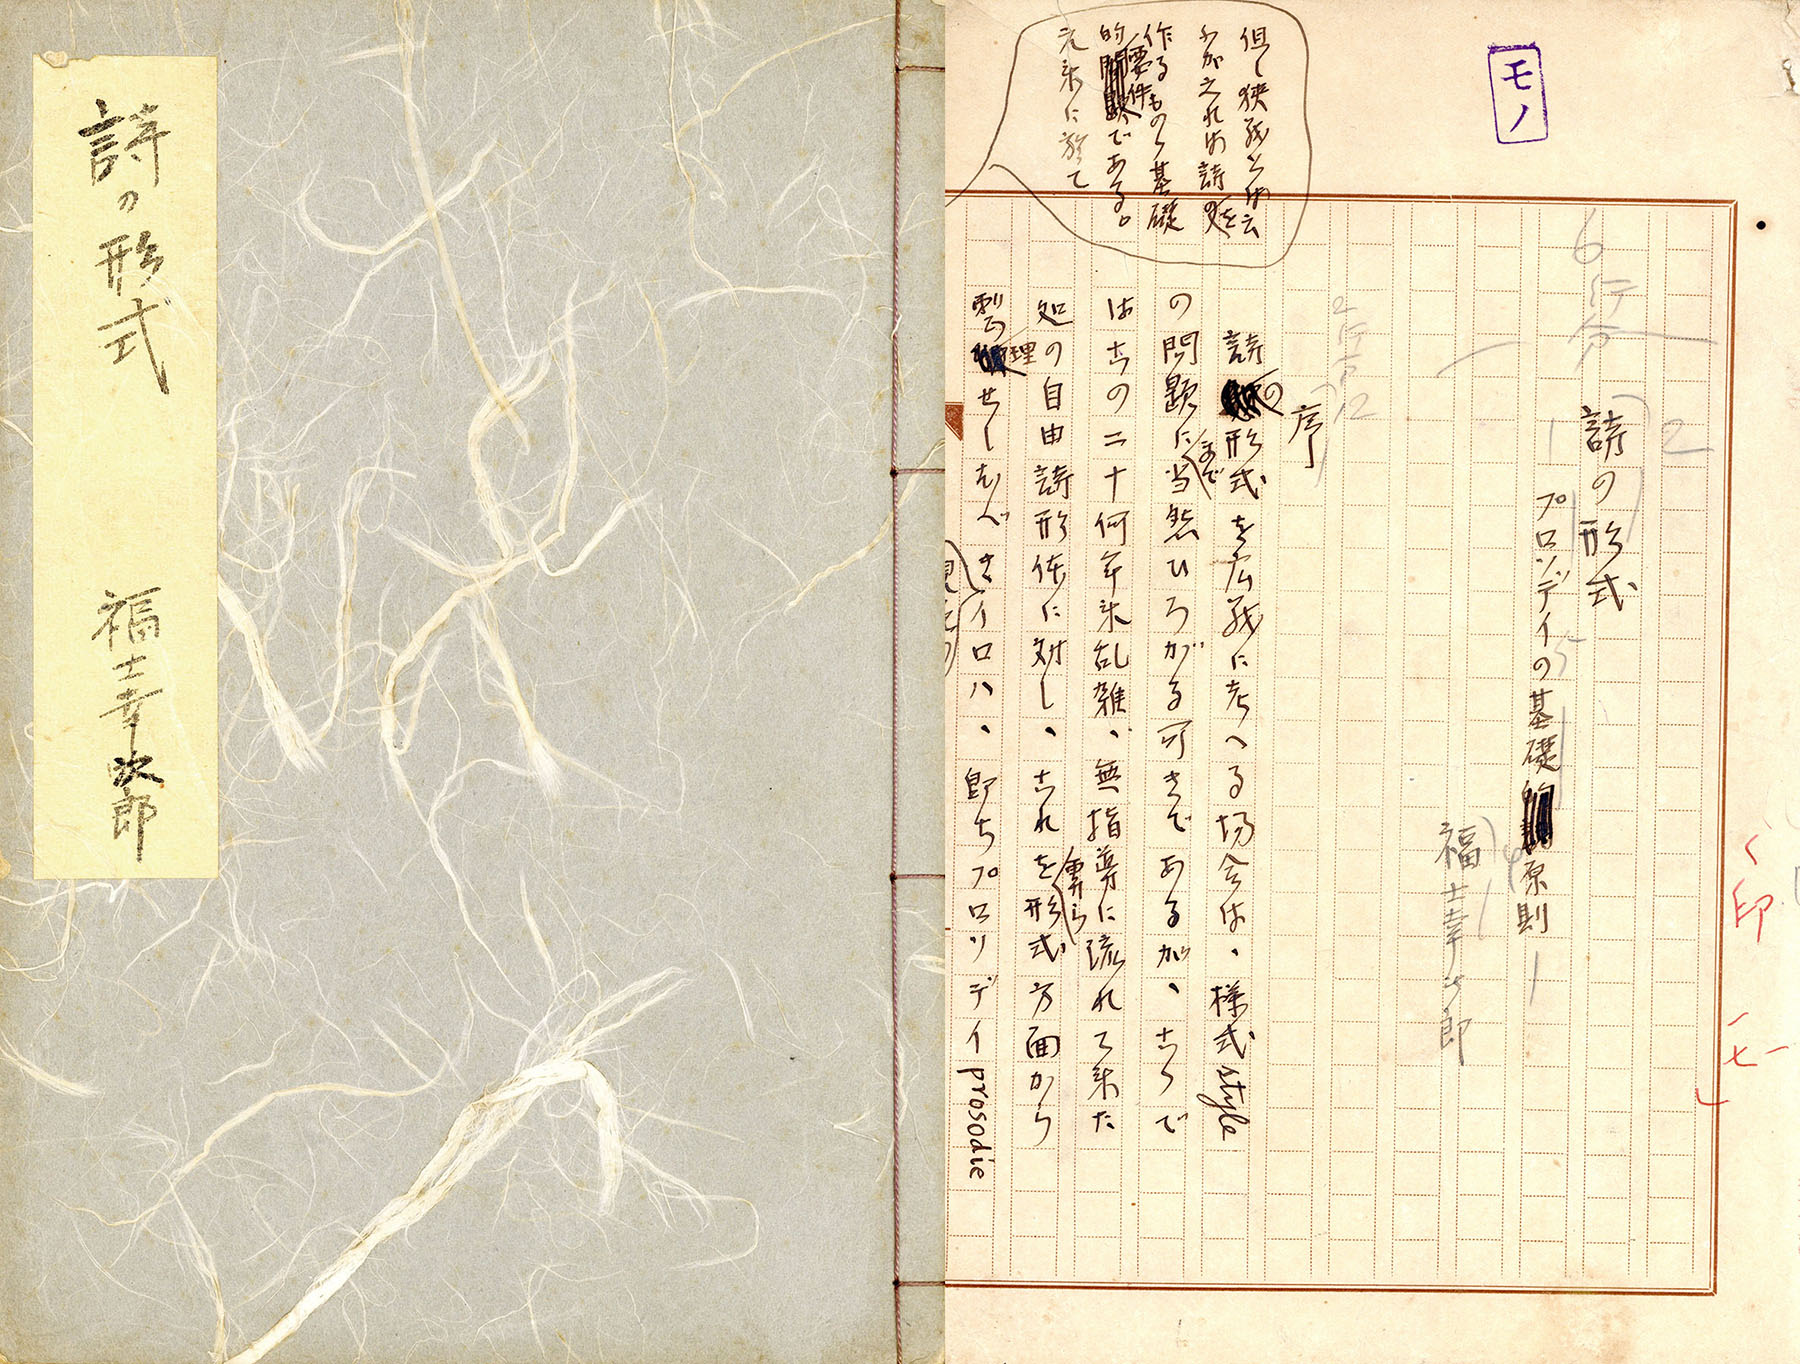 詩の形式
福士幸次郎
モノ
但し狭義とは云
作るものゝ基礎
的要件である。
6行分
2
詩の形式
プロソデイの基礎原則
福士幸次郎
2行中12
序
詩の形式を広義に考へる場合は、様式style
の問題にまで当然ひろがる可きであるが、こゝで
はこの二十何年来乱雑、無指導に流れて来た
処の自由詩形体に対し、これを専ら形式方面から
整理せしむべきイロハ、即ちプロソデイprosodie
印